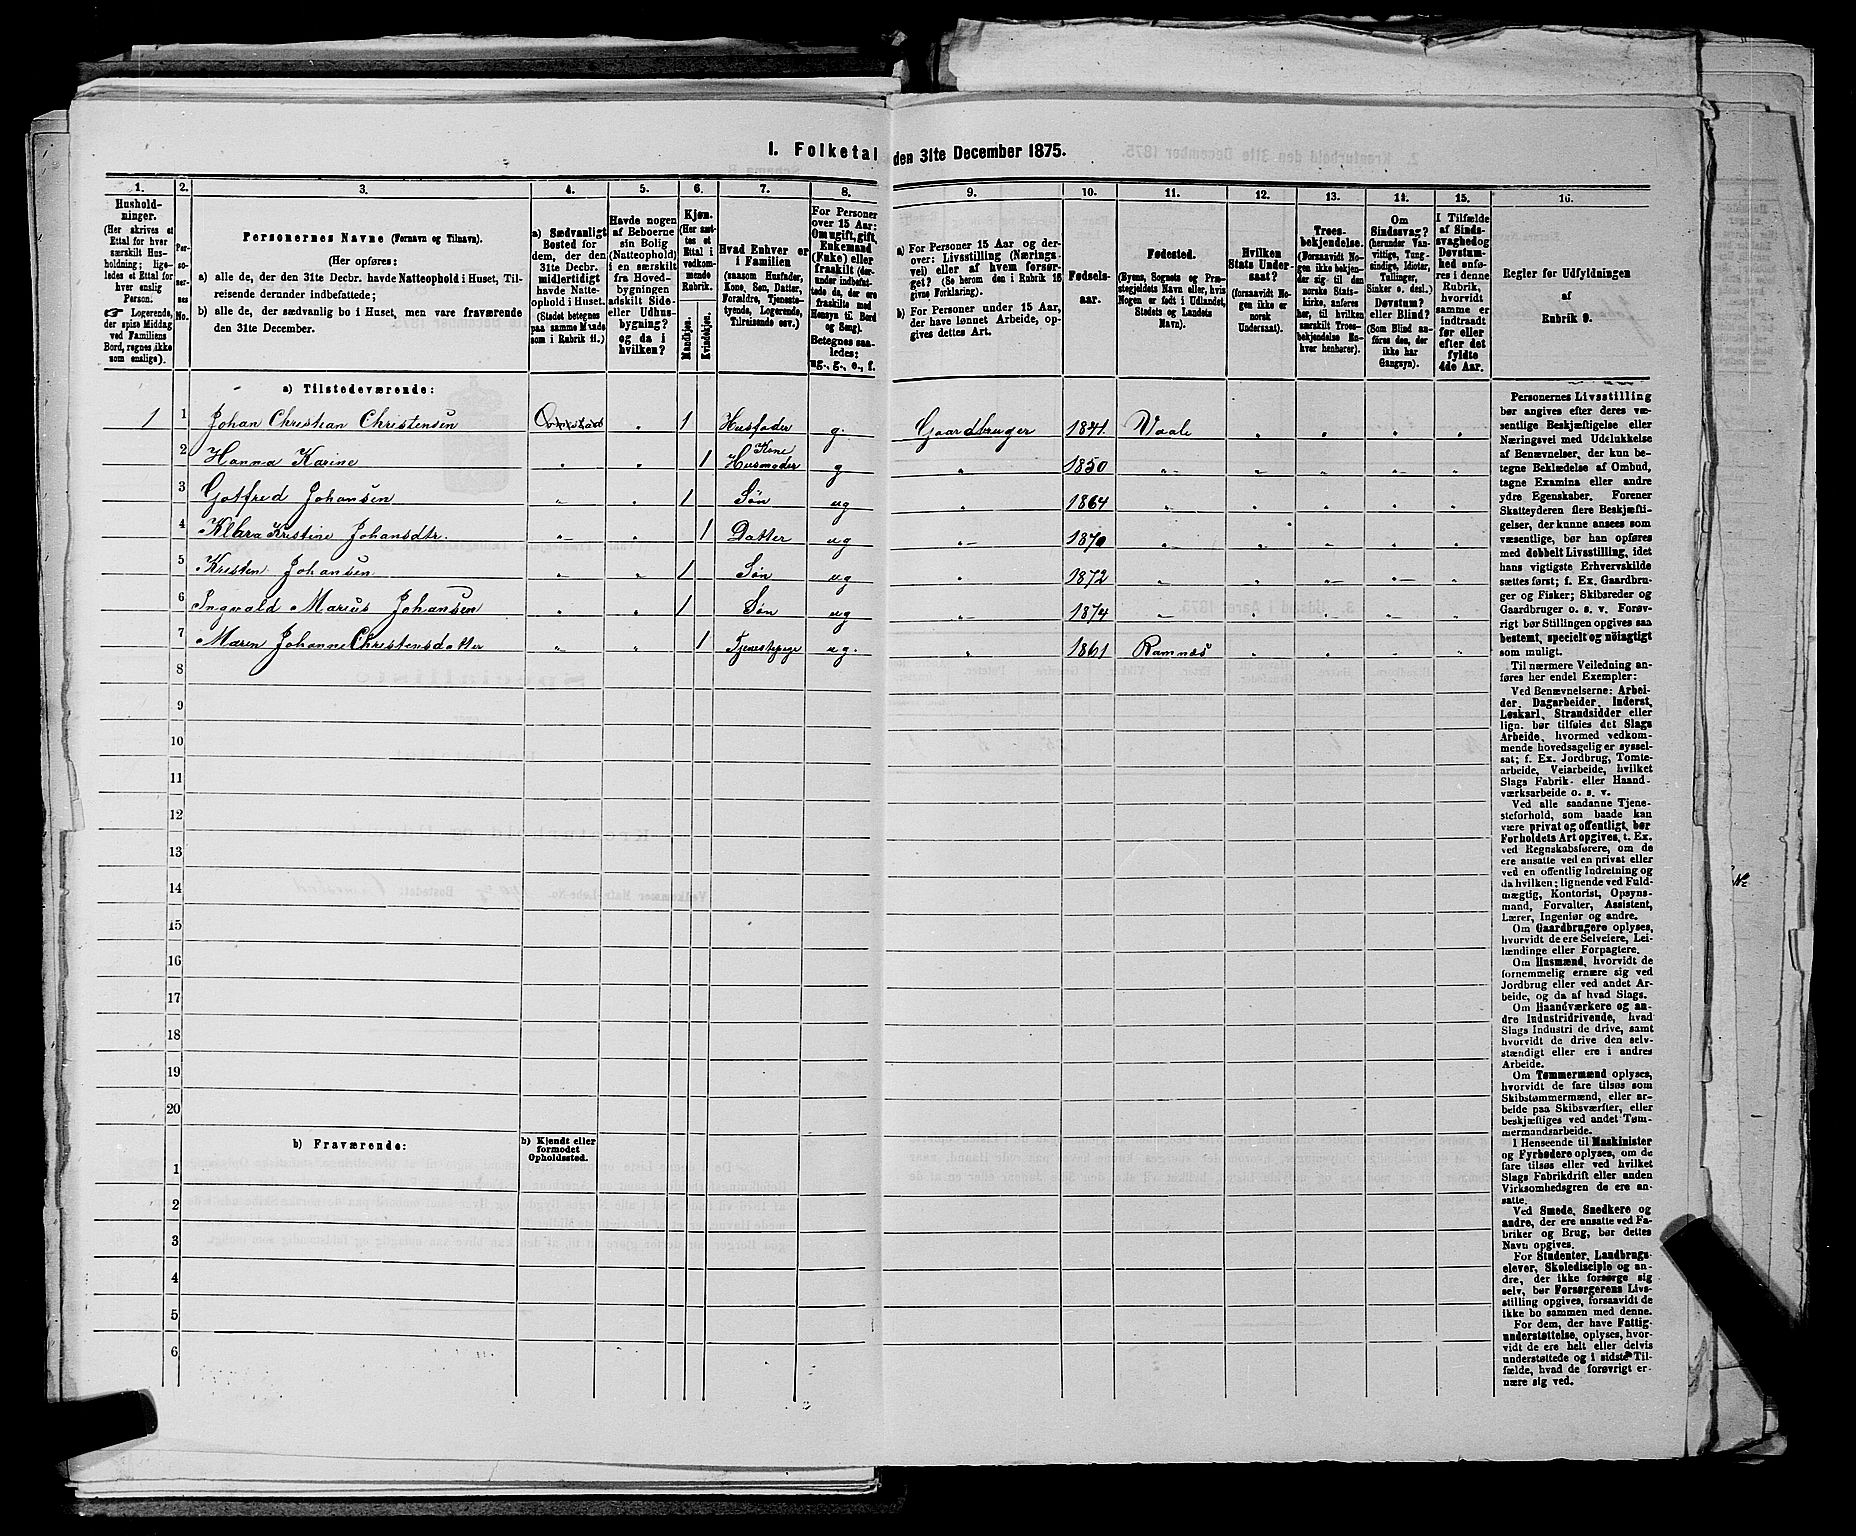 I. Folketal den 31te December 1875.
1. 2. 3. 4. 5. 6. 7. 8. 9. 10. 11. 12. 13. 14. 15. 16.
Hushold-
ninger.
(Her skrives et
Ettal for hver
særskilt Hus-
holdning; lige-
ledes et Ettal for
hver enslig
Person.
☛ Logerende,
der spise Middag
ved Familiens
Bord, regnes ikke
som enslige).
Per-
so-
ner-
nes
No.
Personernes Navne (Fornavn og Tilnavn).
(Her opføres:
a) alle de, der den 31te Decbr. havde Natteophold i Huset, Til-
reisende derunder indbefattede;
b) alle de, der sædvanlig bo i Huset, men vare fraværende
den 31te December.
a) Sædvanligt
Bosted for
dem, der den
31te Decbr.
midlertidigt
havde Natte-
ophold i Huset.
(Stedet betegnes
paa samme Maade
som i Rubrik 11.)
Havde nogen
af Beboerne
sin Bolig
(Natteophold)
i en særskilt
fra Hoved-
bygningen
adskilt Side-
eller Udhus-
bygning?
og da i
hvilken?
Kjøn.
(Her sæt-
tes et
Ettal i
vedkom-
mende
Rubrik.
Mandkjøn.
Kvindekjøn.
Hvad Enhver er
i Familien
(saasom Husfader,
Kone, Søn, Datter,
Forældre, Tjeneste-
tyende, Logerende,
Tilreisende osv.)
For Personer
over 15 Aar:
Om ugift, gift,
Enkemand
(Enke) eller
fraskilt (der-
under indbefat-
tede de, der ere
fraskilte med
Hensyn til Bord
og Seng).
Betegnes saa-
ledes:
ug., g., e., f.
a) For Personer 15 Aar og der-
over: Livsstilling (Nærings-
vei) eller af hvem forsør-
get? (Se herom den i Rubrik 16
givne Forklaring).
b) For Personer under 15 Aar,
der have lønnet Arbeide, op-
gives dettes Art.
Fødsels-
aar.
Fødested.
(Byens, Sognets og Præ-
stegjeldets Navn eller, hvis
Nogen er født i Udlandet,
Stedets og Landets
Navn).
Hvilken
Stats Under-
saat?
(forsaavidt No-
gen ikke er
norsk
Undersaat).
Troes-
bekjendelse.
(Forsaavidt No-
gen ikke bekjen-
der sig til den
norske Stats-
kirke, anføres
her, til hvilken
særskilt Troes-
bekjendelse En-
hver henhører).
Om
Sindssvag?
(herunder Van-
vittige, Tung-
sindige, Idioter,
Tullinger,
Sinker o. desl.)
Døvstum?
eller Blind?
(Som Blind an-
føres den, der
ikke har
Gangsyn).
I Tilfælde
af Sinds-
svaghed og
Døvstum-
hed anfø-
res i denne
Rubrik,
hvorvidt
samme er
indtraadt
før eller
efter det
fyldte
4de Aar.
Regler for Udfyldningen
af
Rubrik 9.
a) Tilstedeværende:
1 1 Johan Christian Christensen " 1 Husfader g. Gaardbruger 1841. Vaale " " " "
2 Hanna Karine " " 1 Kone Husmoder g " 1850 " " " " "
3 Gotfred Johansen " " 1 Søn ug " 1864 " " " " "
4 Klara Kristine Johansdtr. " " 1 Datter ug " 1870 " " " " "
5 Kristen Johansen " " 1 Søn ug " 1872 " " " " "
6 Ingvald Marius Johansen " " 1 Søn ug " 1874 " " " " "
7 Maren Johanne Christensdatter " " 1 Tjenestepige ug. " 1861 Ramnæs " " " "
8
9
10
11
12
13
14
15
16
17
18
19
20
b) Fraværende:
b) Kjendt eller
formodet
Opholdssted.
1
2
3
4
5
6
Personernes Livsstilling
bør angives efter deres væ-
sentlige Beskjæftigelse eller
Næringsvei med Udelukkelse
af Benævnelser, der kun be-
tegne Beklædelse af Ombud,
tagne Examina eller andre
ydre Egenskaber. Forener
Skatteyderen flere Beskjæfti-
gelser, der kunne ansees som
væsentlige, bør han opføres
med dobbelt Livsstilling, idet
hans vigtigste Erhvervskilde
sættes først; f. Ex. Gaardbru-
ger og Fisker; Skibsreder og
Gaardbruger o. s. v. Forøv-
rigt bør Stillingen opgives saa
bestemt, specielt og nøiagtigt
som muligt.
Til nærmere Veiledning an-
føres her endel Exempler:
Ved Benævnelserne: Arbei-
der, Dagarbeider, Inderst,
Løskarl, Strandsidder eller
lign. bør tilføies det Slags
Arbeide, hvormed vedkom-
mende hovedsagelig er syssel-
sat; f. Ex. Jordbrug, Tomte-
arbeide, Veiarbeide, hvilket
Slags Fabrik- eller Haand-
værksarbeide o. s. v.
Ved alle saadanne Tjene-
steforhold, som baade kan
være privat og offentligt, bør
Forholdets Art opgives, t. Ex.
ved Regnskabsførere, om de
ere ansatte ved en privat eller
ved en offentlig Indretning og
da hvilken; lignende ved Fuld-
mægtig, Kontorist, Opsyns-
mand, Forvalter, Assistent,
Lærer, Ingeniør og andre.
Om Gaardbrugere oplyses,
hvorvidt de ere Selveiere, Lei-
lændinge eller Forpagtere.
Om Husmænd, hvorvidt de
fornemmelig ernære sig ved
Jordbrug eller ved andet Ar-
beide, og da af hvad Slags.
Om Haandværkere og an-
dre Industridrivende, hvad
Slags Industri de drive, samt
hvorvidt de drive den selv-
stændigt eller ere i andres
Arbeide.
Om Tømmermænd oplyses,
hvorvidt de fare tilsøs som
Skibstømmermænd, eller ar-
beide paa Skibsværfter, eller
beskjæftiges ved andet Tøm-
mermandsarbeide.
I Henseende til Maskinister
og Fyrbødere oplyses, om de
fare tilsøs eller ved hvilket
Slags Fabrikdrift eller anden
Virksomhedsgren de ere an-
satte.
Ved Smede, Snedkere og
andre, der ere ansatte ved Fa-
briker og Brug, bør dettes
Navn opgives.
For Studenter, Landbrugs-
elever, Skoledisciple og an-
dre, der ikke forsørge sig
selv, bør Forsørgerens Livs-
stilling opgives, forsaavidt de
ikke bo sammen med denne.
For dem, der have Fattig-
understøttelse, oplyses, hvor-
vidt de ere helt eller delvis
understøttede og i sidste Til-
fælde, hvad de forøvrigt er-
nære sig ved.